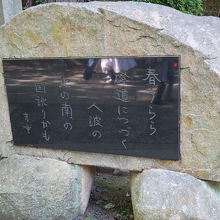 春うらら
参道につづく
人波の
北の南の
国訛りかも